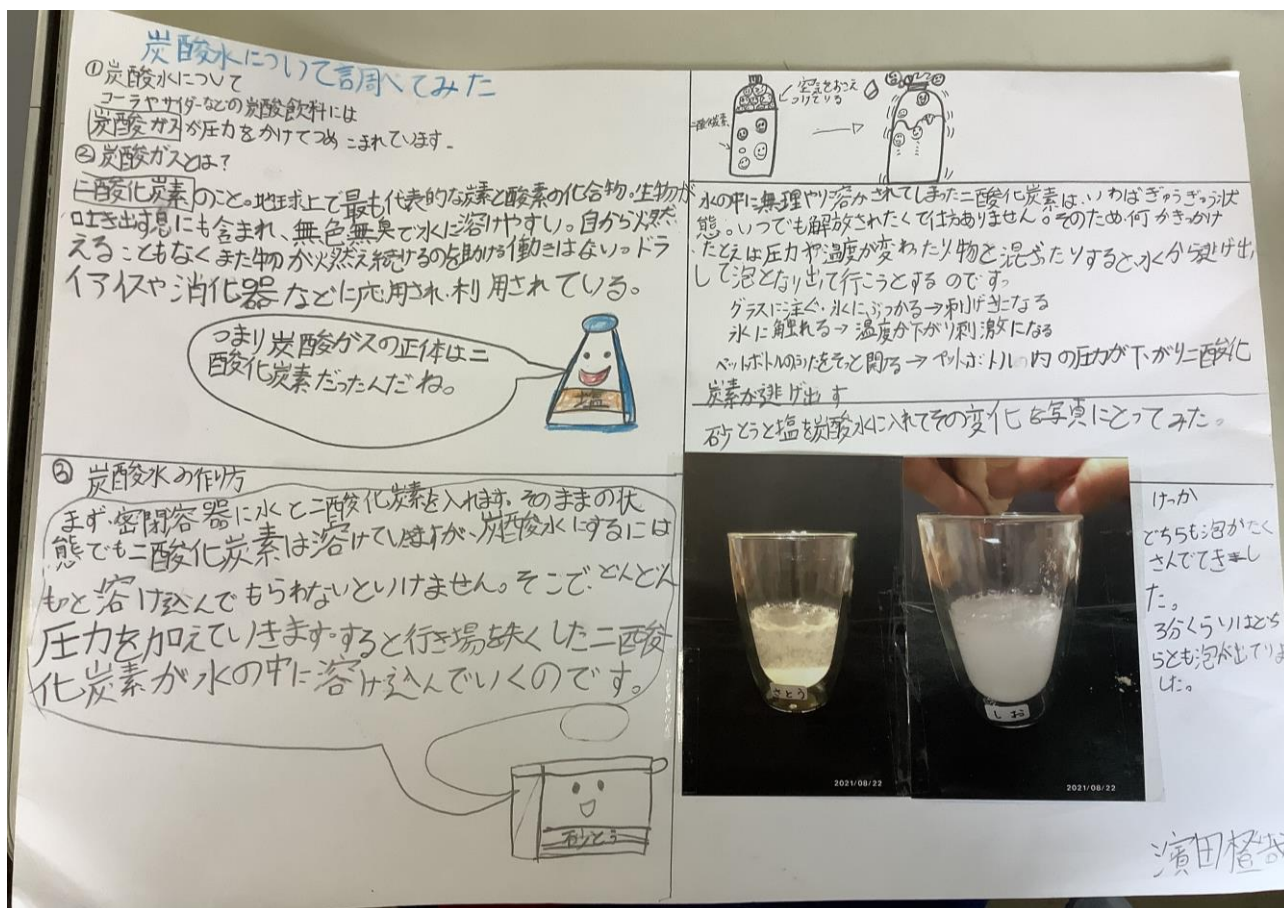 炭酸水について調べてみた
①炭酸水について
コーラやサイダーなどの炭酸飲料には
炭酸ガスが圧力をかけてつめこまれています。
②炭酸ガスとは?
二酸化炭素のこと。地球上で最も代表的な炭素と酸素の化合物。生物が
吐き出す息にも含まれ、無色無臭で水に溶けやすい。自から燃
えることもなくまた物が燃え続けるのを助ける働きはない。ドラ
イアイスや消化器などに応用され利用されている。
つまり炭酸ガスの正体は二
酸化炭素だったんだね。
塩
③炭酸水の作り方
まず、密閉容器に水と二酸化炭素を入れます。そのままの状
態でも二酸化炭素は溶けていますが、炭酸水にするには
もっと溶け込んでもらわないといけません。そこで、どんどん
圧力を加えていきます。すると行き場を失くした二酸
化炭素が水の中に溶け込んでいくのです。
砂とう
空気をおさえ
つけている
二酸化炭素
水の中に無理やり溶かされてしまった二酸化炭素は、いわばぎゅうぎゅう状
態。いつでも解放されたくて仕方ありません。そのため何かきっかけ
たとえば圧力や温度が変わったり物と混ざったりすると、水から逃げ出
して泡となり出て行こうとするのです。
グラスに注ぐ・氷にぶつかる→刺げきになる
氷に触れる→温度が下がり刺激になる
ペットボトルのふたをそっと開る→ペットボトルの内の圧力が下がり二酸化
炭素が逃げ出す
砂とうと塩を炭酸水に入れてその変化を写真にとってみた。
さとう
2021/08/22
しお
2021/08/22
けっか
どちらも泡がたく
さんでてきまし
た。
3分くらいはどち
らとも泡が出ていま
した。